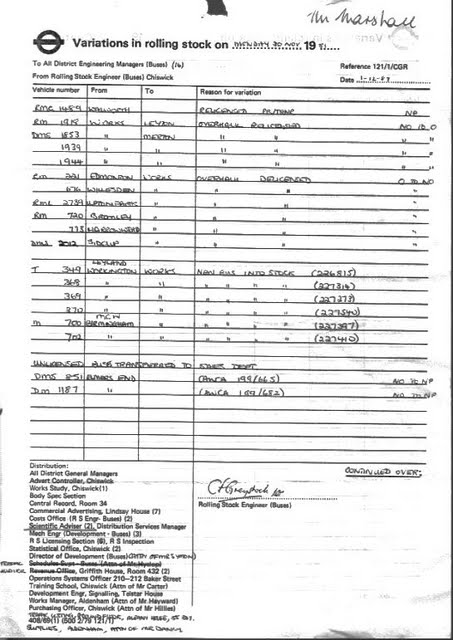 Mr Marshall
Variations in rolling stock on MONDAY 30 NOV. 19 81....
To All District Engineering Managers (Buses) (16)
Reference 121/1/CGR
From Rolling Stock Engineer (Buses) Chiswick
Date 1-12-81
Vehicle number From To Reason for variation
RMC 1489 RELICENCED NP
RM 1919 WORKS LEYTON OVERHAUL RELICENSED NO TO O
DMS 1853 " MERTON " " "
1939 " " " " "
1944 " " " " "
RM 221 EDMONTON WORKS OVERHAUL DELICENSED O TO NO
676 WILLESDEN " " " "
RML 2739 " " " "
RM 720 BROMLEY " " " "
775 " " " "
DMS 2012 SIDCUP " " " "
LEYLAND
T 349 WORKINGTON WORKS NEW BUS INTO STOCK (226815)
368 " " " " " " (227314)
369 " " " " " " (227273)
370 " " " " " " (227540)
MCW
M 700 BIRMINGHAM " " " " " (227397)
702 " " " " " " (227410)
UNLICENSED BUS TRANSFERRED TO DEPT
DMS 851 ELMERS END (AMCA 199/665) NO TO NP
DM 1187 " (AMCA 199/682) NO TO NP
CONTINUED OVER:
Distribution:
All District General Managers
Advert Controller, Chiswick
Works Study, Chiswick(1)
Body Spec Section
Central Record, Room 34
Commercial Advertising, Lindsay House (7)
Costs Office (R S Engr- Buses) (2)
Rolling Stock Engineer (Buses)
Scientific Adviser (2), Distribution Services Manager
Mech Engr (Development - Buses) (3)
R S Licensing Section (6), R S Inspection
Statistical Office, Chiswick (2)
Director of Development (Buses)
Schedules Supt - Buses (Attn of Mr Hyslop)
Revenue Office, Griffith House, Room 432 (2)
Operations Systems Officer 210-212 Baker Street
Training School, Chiswick (Attn of Mr Carter)
Development Engr, Signalling, Telstar House
Works Manager, Aldenham (Attn of Mr. Hayward)
Purchasing Officer, Chiswick (Attn of Mr Hillies)
408/69(1) (500 2/79 121/1)
SUPPLIES, ALDENHAM, ATTN OF MR DANNY